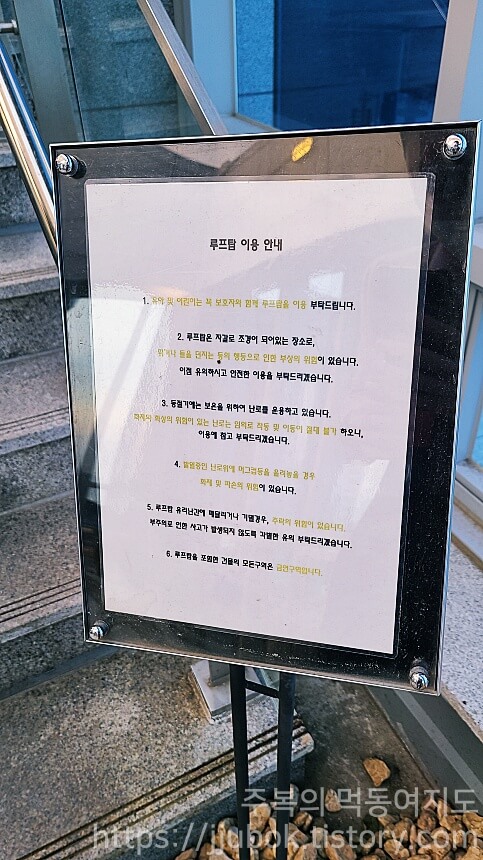 루프탑 이용 안내
1. 유아 및 어린이는 꼭 보호자와 함께 루프탑을 이용 부탁드립니다.
2. 루프탑은 자갈로 조경이 되어있는 장소로,
뛰거나 돌을 던지는 등의 행동으로 인한 부상의 위험이 있습니다.
이점 유의하시고 안전한 이용을 부탁드리겠습니다.
3. 동절기에는 보온을 위하여 난로를 운용하고 있습니다.
화재와 화상의 위험이 있는 난로는 임의로 작동 및 이동이 절대 불가 하오니,
이용에 참고 부탁드리겠습니다.
4. 발열중인 난로위에 머그컵등을 올려놓을 경우
화재 및 파손의 위험이 있습니다.
5. 루프탑 유리난간에 매달리거나 기댈경우, 추락의 위험이 있습니다.
부주의로 인한 사고가 발생되지 않도록 각별한 유의 부탁드리겠습니다.
6. 루프탑을 포함한 건물의 모든구역은 금연구역입니다.
주복의 먹동여지도
https://jjubok.tistory.com